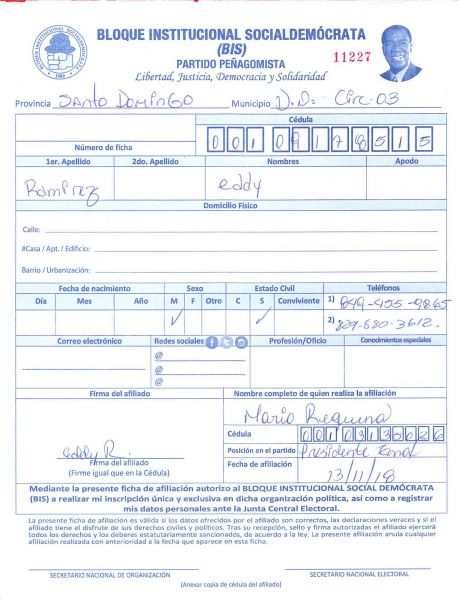 BLOQUE INSTITUCIONAL SOCIALDEMÓCRATA
(BIS)
PARTIDO PEÑAGOMISTA
11227
Libertad, Justicia, Democracia y Solidaridad
Provincia SANTO DOMINGO Municipio D.N. Circ. 03
Cédula
Número de ficha 001 0917851 5
1er. Apellido 2do. Apellido Nombres Apodo
Ramirez eddy
Domicilio Físico
Calle:
#Casa / Apt. / Edificio:
Barrio / Urbanización:
Fecha de nacimiento Sexo Estado Civil Teléfonos
Día Mes Año M F Otro C S Conviviente 1) 849-455-9865
✓ ✓ 2) 829-880-3612.
Correo electrónico Redes sociales Profesión/Oficio Conocimientos especiales
@
@
@
Firma del afiliado Nombre completo de quien realiza la afiliación
Mario Requena
Cédula 001 0313502 6
Eddy R. Posición en el partido Presidente Zonal
Firma del afiliado Fecha de afiliación
(Firme igual que en la Cédula) 13/11/18
Mediante la presente ficha de afiliación autorizo al BLOQUE INSTITUCIONAL SOCIAL DEMÓCRATA
(BIS) a realizar mi inscripción única y exclusiva en dicha organización política, así como a registrar
mis datos personales ante la Junta Central Electoral.
La presente ficha de afiliación es válida si los datos ofrecidos por el afiliado son correctos, las declaraciones veraces y si el
afiliado tiene el disfrute de sus derechos civiles y políticos. Tras su recepción, sello y firma autorizadas el afiliado ejercerá
todos los derechos y los deberes estatutariamente sancionados, de acuerdo a la ley. La presente afiliación anula cualquier
afiliación realizada con anterioridad a la fecha que aparece en esta ficha.
SECRETARIO NACIONAL DE ORGANIZACIÓN SECRETARIO NACIONAL ELECTORAL
(Anexar copia de cédula del afiliado)